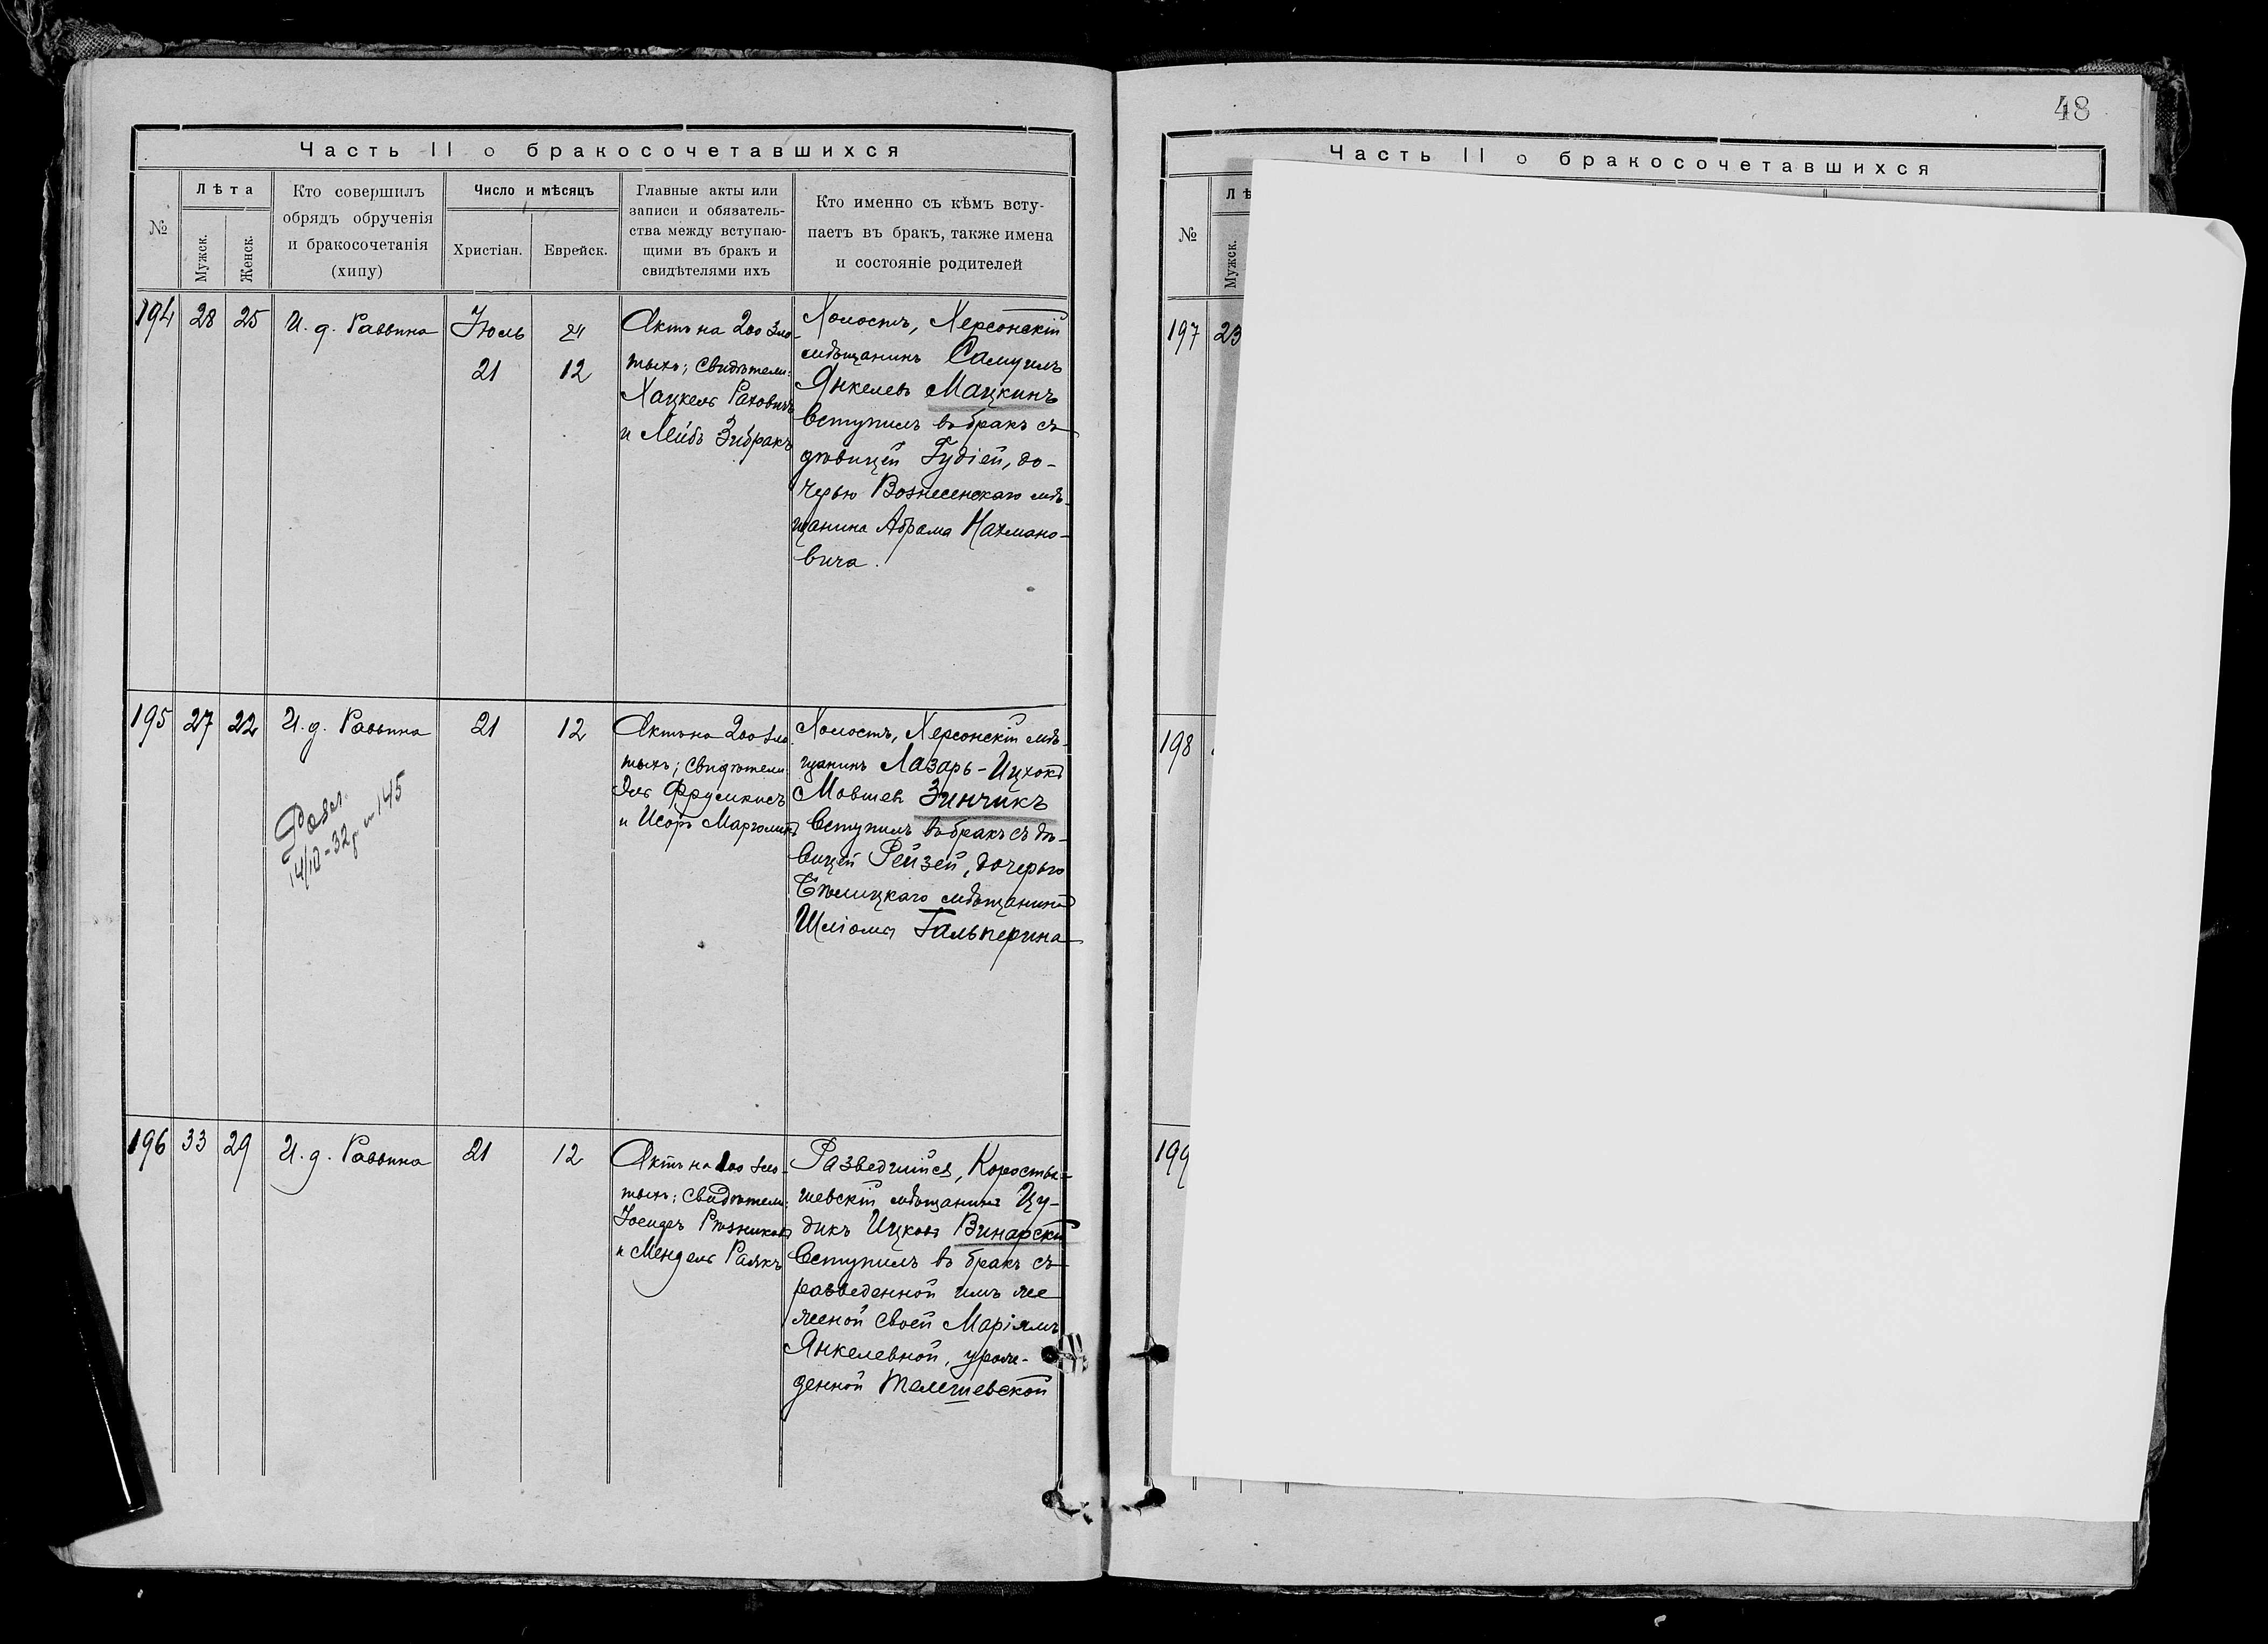 48
Часть II о бракосочетавшихся
№
Лѣта
Мужск.
Женск.
Кто совершилъ
обрядъ обрученія
и бракосочетанія
(хипу)
Число и мѣсяцъ
Христіан.
Еврейск.
Главные акты или
записи и обязатель-
ства между вступаю-
щими въ бракъ и
свидѣтелями ихъ
Кто именно съ кѣмъ всту-
паетъ въ бракъ, также имена
и состояніе родителей
194
28
25
И. д. Раввина
Юль
21
12
Актъ на 200 зло-
тыхъ; свидѣтели:
Хацкель Рахович
и Лейбъ Зибракъ
Холостъ, Херсонскій
мѣщанинъ Самуилъ
Янкелевъ Мацкинъ
вступилъ въ бракъ съ
дѣвицей Гудіей, до-
черью Вознесенскаго мѣ-
щанина Абрама Нахмано-
вича.
195
27
22
И. д. Раввина
21
12
14/III-32г № 145
Актъ на 200 зло-
тыхъ; свидѣтели
и Исоръ
Холостъ, Херсонскій мѣ-
щанинъ Лазарь-Ицхокъ
Мовшев Зинчикъ
вступилъ въ бракъ съ дѣ-
вицей Рейзей, дочерью
Бѣлицкаго мѣщанина
Шліомы Гальперина
196
33
29
И. д. Раввина
21
12
Актъ на 100 зло-
тыхъ; свидѣтели:
Рѣзников
и Мендель Раякъ
Разведшійся, Коросты-
шевскій мѣщанинъ Цу-
дикъ Ицковъ Винарскій
вступилъ въ бракъ съ
разведенной имъ же
женой своей Маріямъ
Янкелевной, урож-
денной Телешевской
Часть II о бракосочетавшихся
№
Лѣ
Мужск.
197
23
198
199